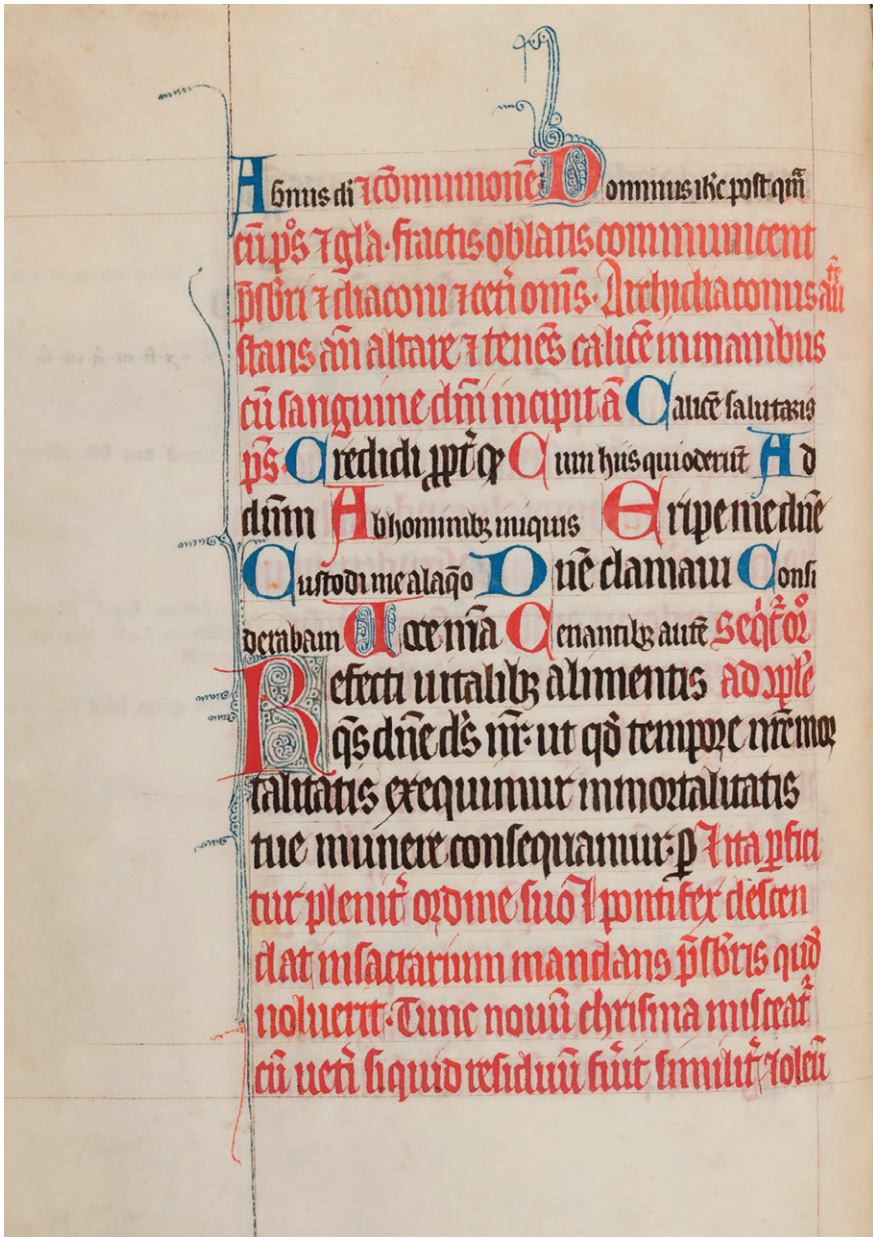 Agnus di ⁊ cōmunionē Dominus ihc post qm̄
cū p̄s ⁊ gl̄a. fractis oblatis communicent
p̄sbri ⁊ diaconi ⁊ cet̄i om̄s. Archidiaconus aūte
stans an̄ altare ⁊ tenēs calicē in manibus
cū sanguine dm̄ incipit ā Calicē salutaris
p̄s. Credidi ꝓpt̄ Cum hiis qui oderūt Ad
dn̄m Ab hominibꝫ iniquis Eripe me dn̄e
Custodi me a laq̄o Dn̄e clamaui Consi
derabam Uoce m̄a Cenantibꝫ autē
Refecti uitalibꝫ alimentis ad ꝯple
q̄s dn̄e ds̄ nr̄. ut qd̄ tempore nr̄e mor
talitatis exequimur inmortalitatis
tue munere consequamur. ꝑ Ita ꝑfici
tur plenit̄ ordine suo ⁊ pontifex descen
dat in sacrarium mandans p̄sbris quid
uoluerit. Tunc nouū chrisma misceat̄
cū uet̄i siquid residuū fu̇it similit̄ ⁊ oleū